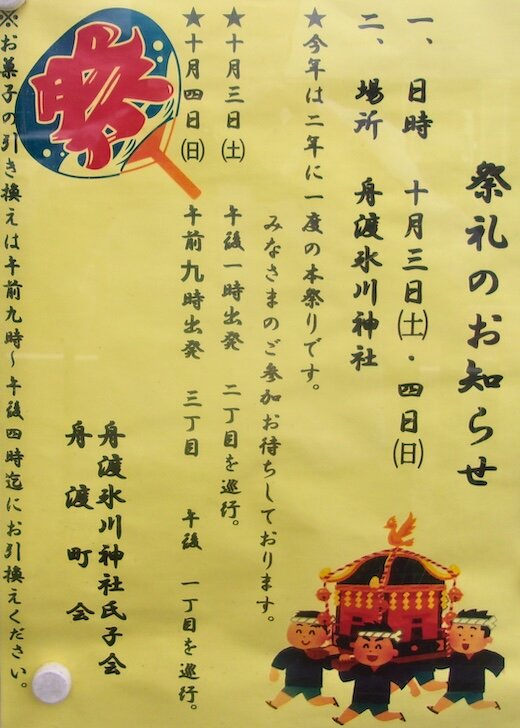 祭礼のお知らせ
一、日時 十月三日㈯・四日㈰
二、場所 舟渡氷川神社
★今年は二年に一度の本祭りです。
みなさまのご参加お待ちしております。
★十月三日㈯ 午後一時出発 二丁目を巡行。
★十月四日㈰ 午前九時出発 三丁目 午後 一丁目を巡行。
舟渡氷川神社氏子会
舟渡町会
※お菓子の引き換えは午前九時~午後四時迄にお引換えください。
祭